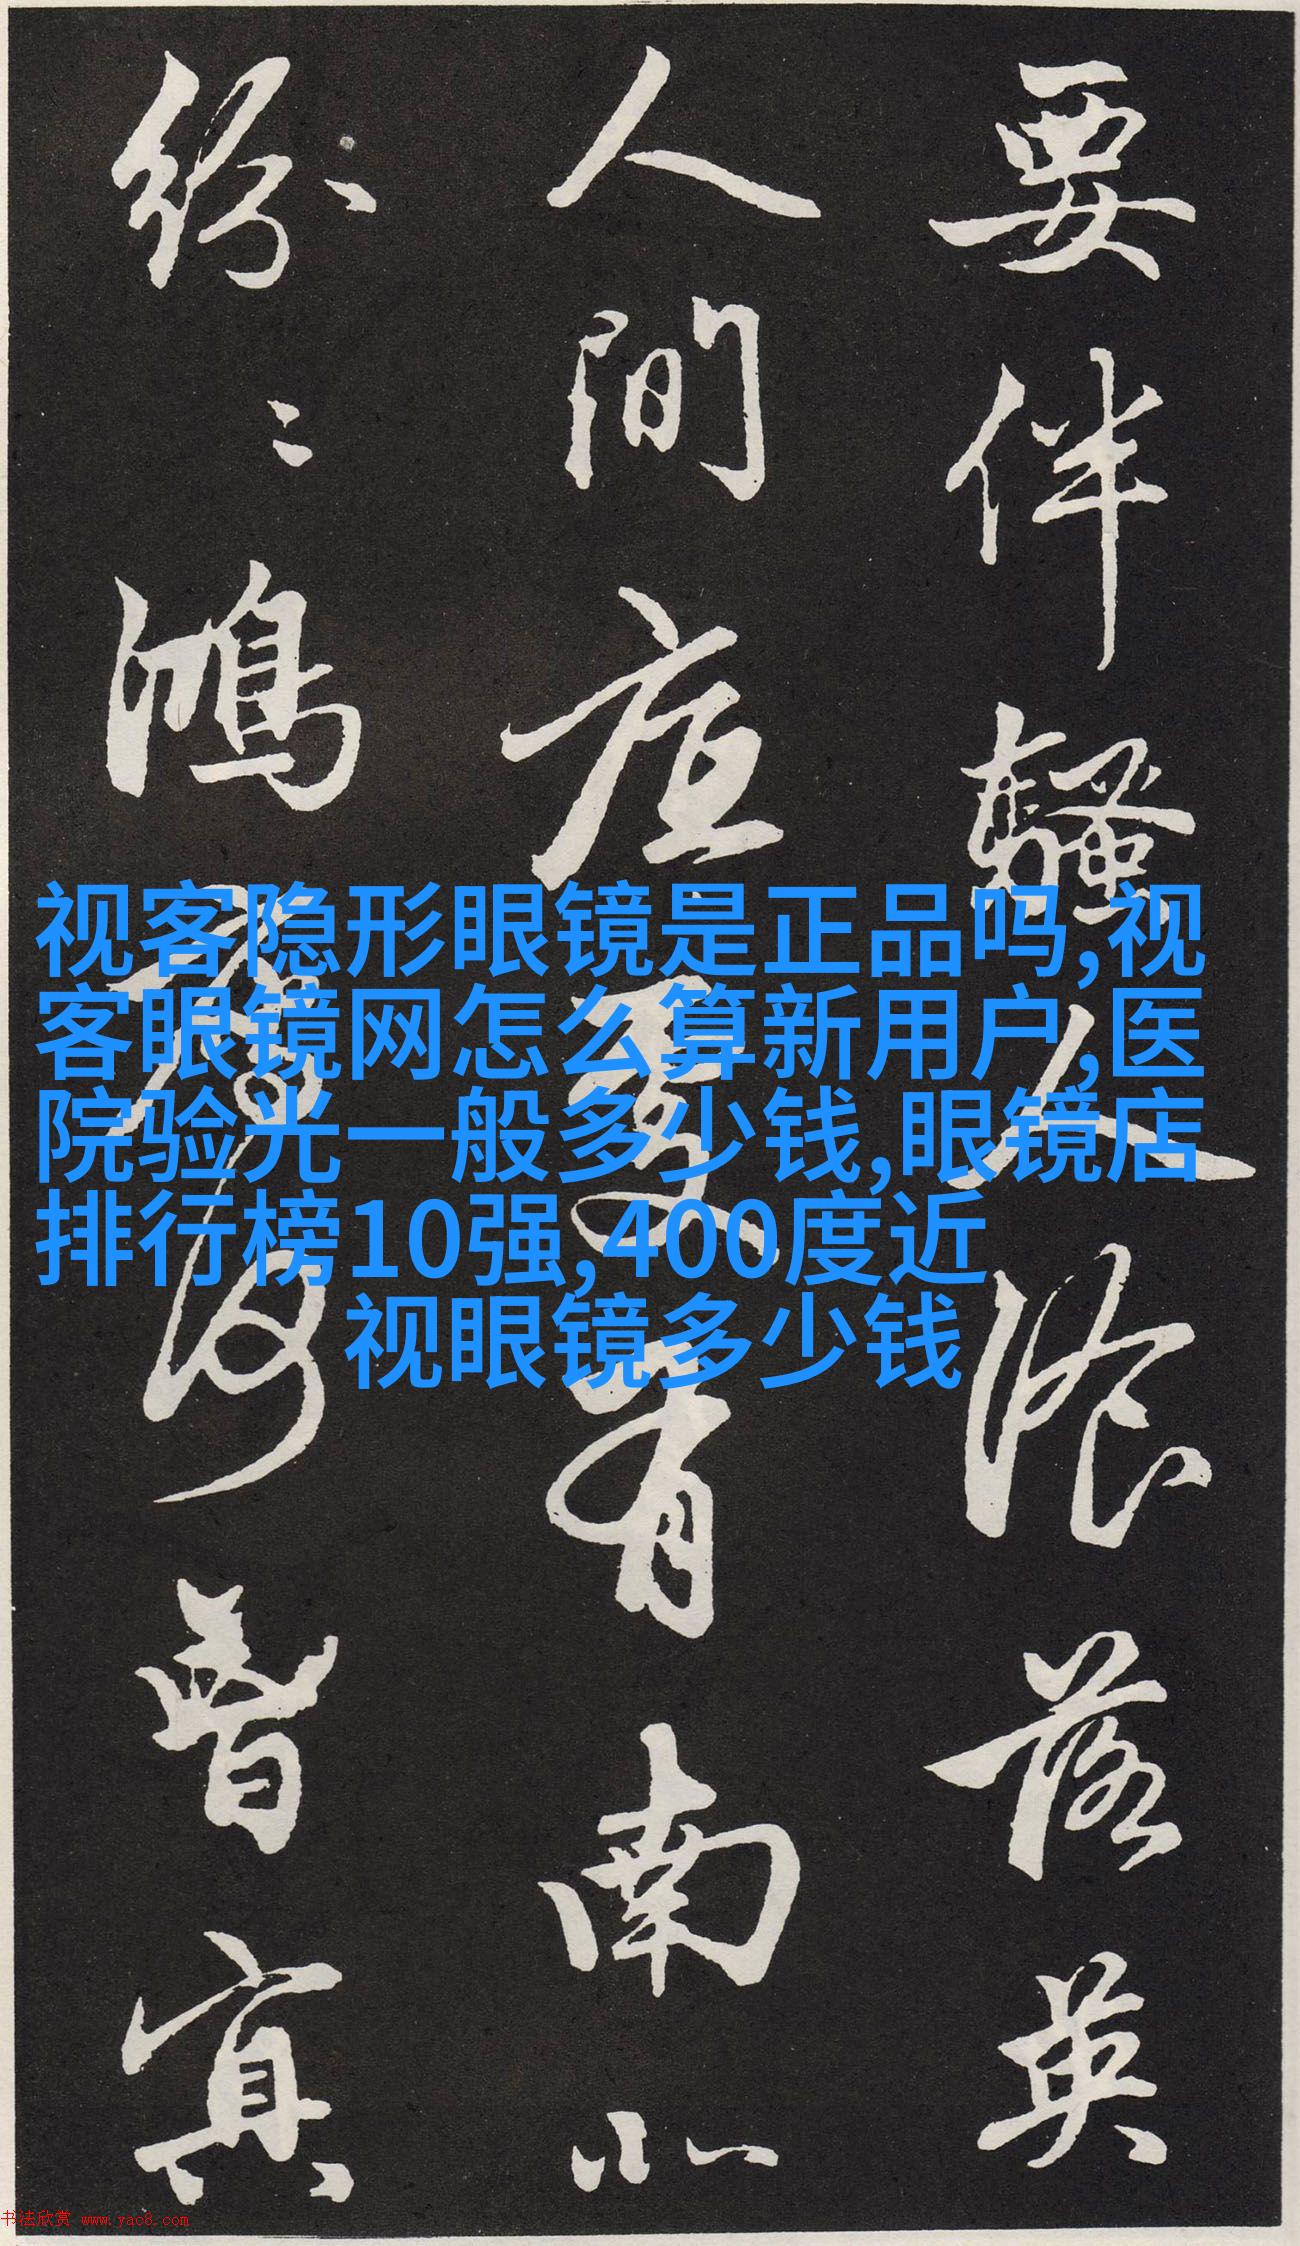 要伴騷人湌落英
人間底處有南北
紛〻鴻雁何曾冥
视客隐形眼镜是正品吗,视
客眼镜网怎么算新用户,医
院验光一般多少钱,眼镜店
排行榜10强,400度近
视眼镜多少钱
书法欣赏 www.yac8.com